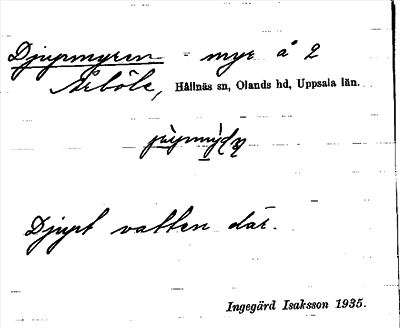 Djupmyren - myr å 2
Årböle, Hållnäs sn, Olands hd, Uppsala län.
Djupt vatten där.
Ingegärd Isaksson 1935.